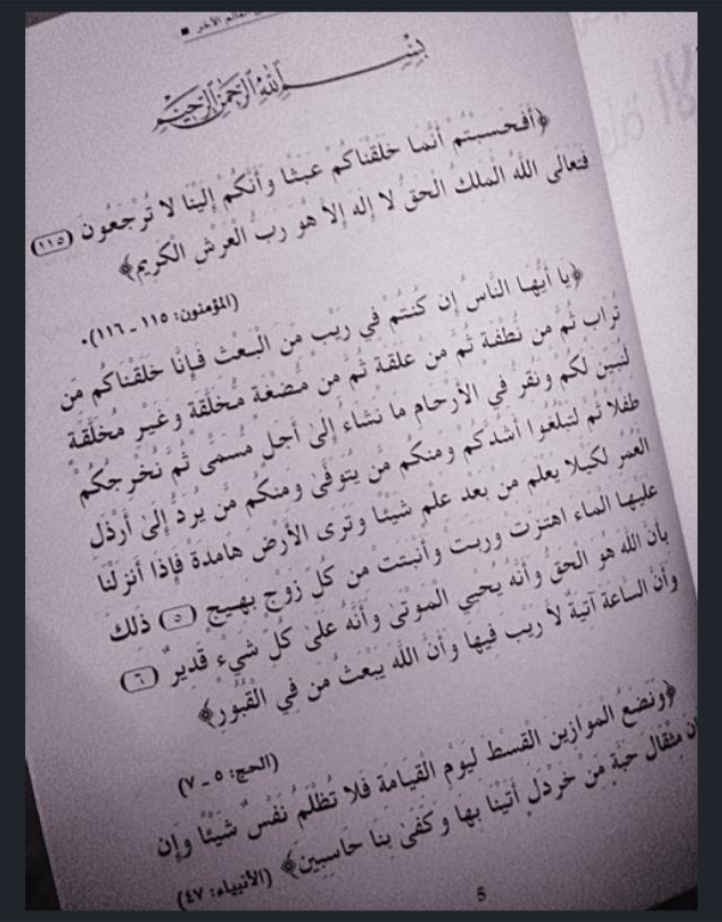 العالم الآخر
بِسْمِ اللَّهِ الرَّحْمَنِ الرَّحِيمِ
﴿أَفَحَسِبْتُمْ أَنَّمَا خَلَقْنَاكُمْ عَبَثًا وَأَنَّكُمْ إِلَيْنَا لَا تُرْجَعُونَ (١١٥)
فَتَعَالَى اللَّهُ الْمَلِكُ الْحَقُّ لَا إِلَهَ إِلَّا هُوَ رَبُّ الْعَرْشِ الْكَرِيمِ﴾
(المؤمنون: ١١٥ - ١١٦).
﴿يَا أَيُّهَا النَّاسُ إِن كُنتُمْ فِي رَيْبٍ مِّنَ الْبَعْثِ فَإِنَّا خَلَقْنَاكُم مِّن
تُرَابٍ ثُمَّ مِن نُّطْفَةٍ ثُمَّ مِنْ عَلَقَةٍ ثُمَّ مِن مُّضْغَةٍ مُّخَلَّقَةٍ وَغَيْرِ مُخَلَّقَةٍ
لِّنُبَيِّنَ لَكُمْ وَنُقِرُّ فِي الْأَرْحَامِ مَا نَشَاءُ إِلَىٰ أَجَلٍ مُّسَمًّى ثُمَّ نُخْرِجُكُمْ
طِفْلًا ثُمَّ لِتَبْلُغُوا أَشُدَّكُمْ وَمِنكُم مَّن يُتَوَفَّىٰ وَمِنكُم مَّن يُرَدُّ إِلَىٰ أَرْذَلِ
الْعُمُرِ لِكَيْلَا يَعْلَمَ مِن بَعْدِ عِلْمٍ شَيْئًا وَتَرَى الْأَرْضَ هَامِدَةً فَإِذَا أَنزَلْنَا
عَلَيْهَا الْمَاءَ اهْتَزَّتْ وَرَبَتْ وَأَنبَتَتْ مِن كُلِّ زَوْجٍ بَهِيجٍ (٥) ذَلِكَ
بِأَنَّ اللَّهَ هُوَ الْحَقُّ وَأَنَّهُ يُحْيِي الْمَوْتَىٰ وَأَنَّهُ عَلَىٰ كُلِّ شَيْءٍ قَدِيرٌ (٦)
وَأَنَّ السَّاعَةَ آتِيَةٌ لَّا رَيْبَ فِيهَا وَأَنَّ اللَّهَ يَبْعَثُ مَن فِي الْقُبُورِ﴾
(الحج: ٥ - ٧)
﴿وَنَضَعُ الْمَوَازِينَ الْقِسْطَ لِيَوْمِ الْقِيَامَةِ فَلَا تُظْلَمُ نَفْسٌ شَيْئًا وَإِن
كَانَ مِثْقَالَ حَبَّةٍ مِّنْ خَرْدَلٍ أَتَيْنَا بِهَا وَكَفَىٰ بِنَا حَاسِبِينَ﴾ (الأنبياء: ٤٧)
5